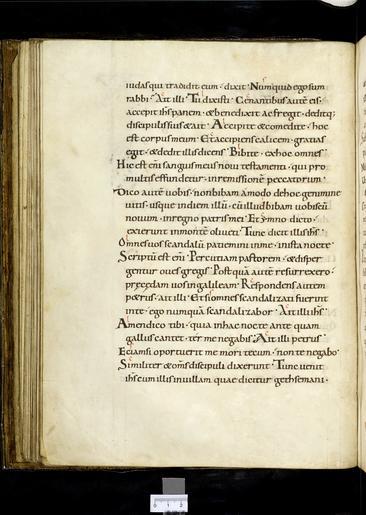 iudas qui tradidit eum · dixit · Numquid ego sum
rabbi · Ait illi · Tu dixisti · Cenantibus autē eis ·
accepit ihs panem · & benedixit ac fregit · deditq;
discipulis suis & ait · Accipite & comedite · hoc
est corpus meum · Et accipiens calicem · gratias
egit · & dedit illis dicens · Bibite · ex hoc omnes ·
Hic est enī sanguis meus noui testamenti · qui pro
multis effundetur · in remissionē peccatorum ·
Dico autē uobis · non bibam amodo de hoc genimine
uitis · usque in diem illū · cū illud bibam uobiscū
nouum · in regno patris mei · Et ymno dicto ·
exierunt in montē oliueti · Tunc dicit illis ihs ·
Omnes uos scandalū patiemini in me · in ista nocte ·
Scriptū est enī · Percutiam pastorem · & disper
gentur oues gregis · Post quā autē resurrexero ·
precedam uos in galileam · Respondens autem
petrus · ait illi · Et si omnes scandalizati fuerint
in te · ego numquā scandalizabor · Ait illi ihs ·
Amen dico tibi · quia in hac nocte ante quam
gallus cantet · ter me negabis · Ait illi petrus ·
Etiamsi oportuerit me mori tecum · non te negabo ·
Similiter & om̄s discipuli dixerunt · Tunc uenit
ihs cum illis in uillam quae dicitur gethsemani ·